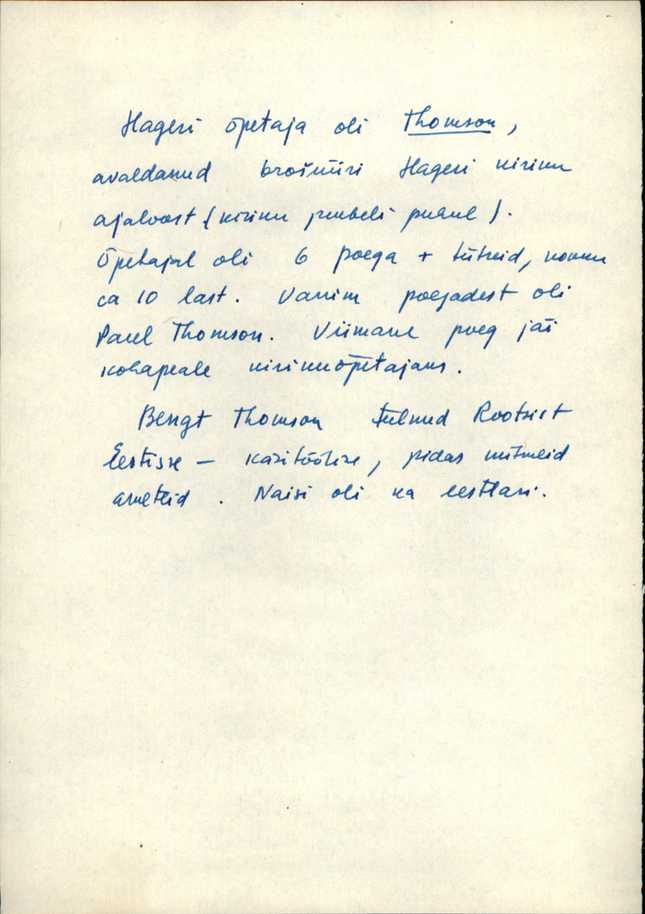 Hageri õpetaja oli Thomson,
avaldanud brošüüri Hageri kiriku
ajaloost (kiriku juubeli puhul).
Õpetajal oli 6 poega + tütreid, kokku
ca 10 last. Vanim poegadest oli
Paul Thomson. Viimane poeg jäi
kohapeale kirikuõpetajaks.
Bengt Thomson tulnud Rootsist
Eestisse – käsitööline, pidas mitmeid
ameteid. Naisi oli ka eestlasi.